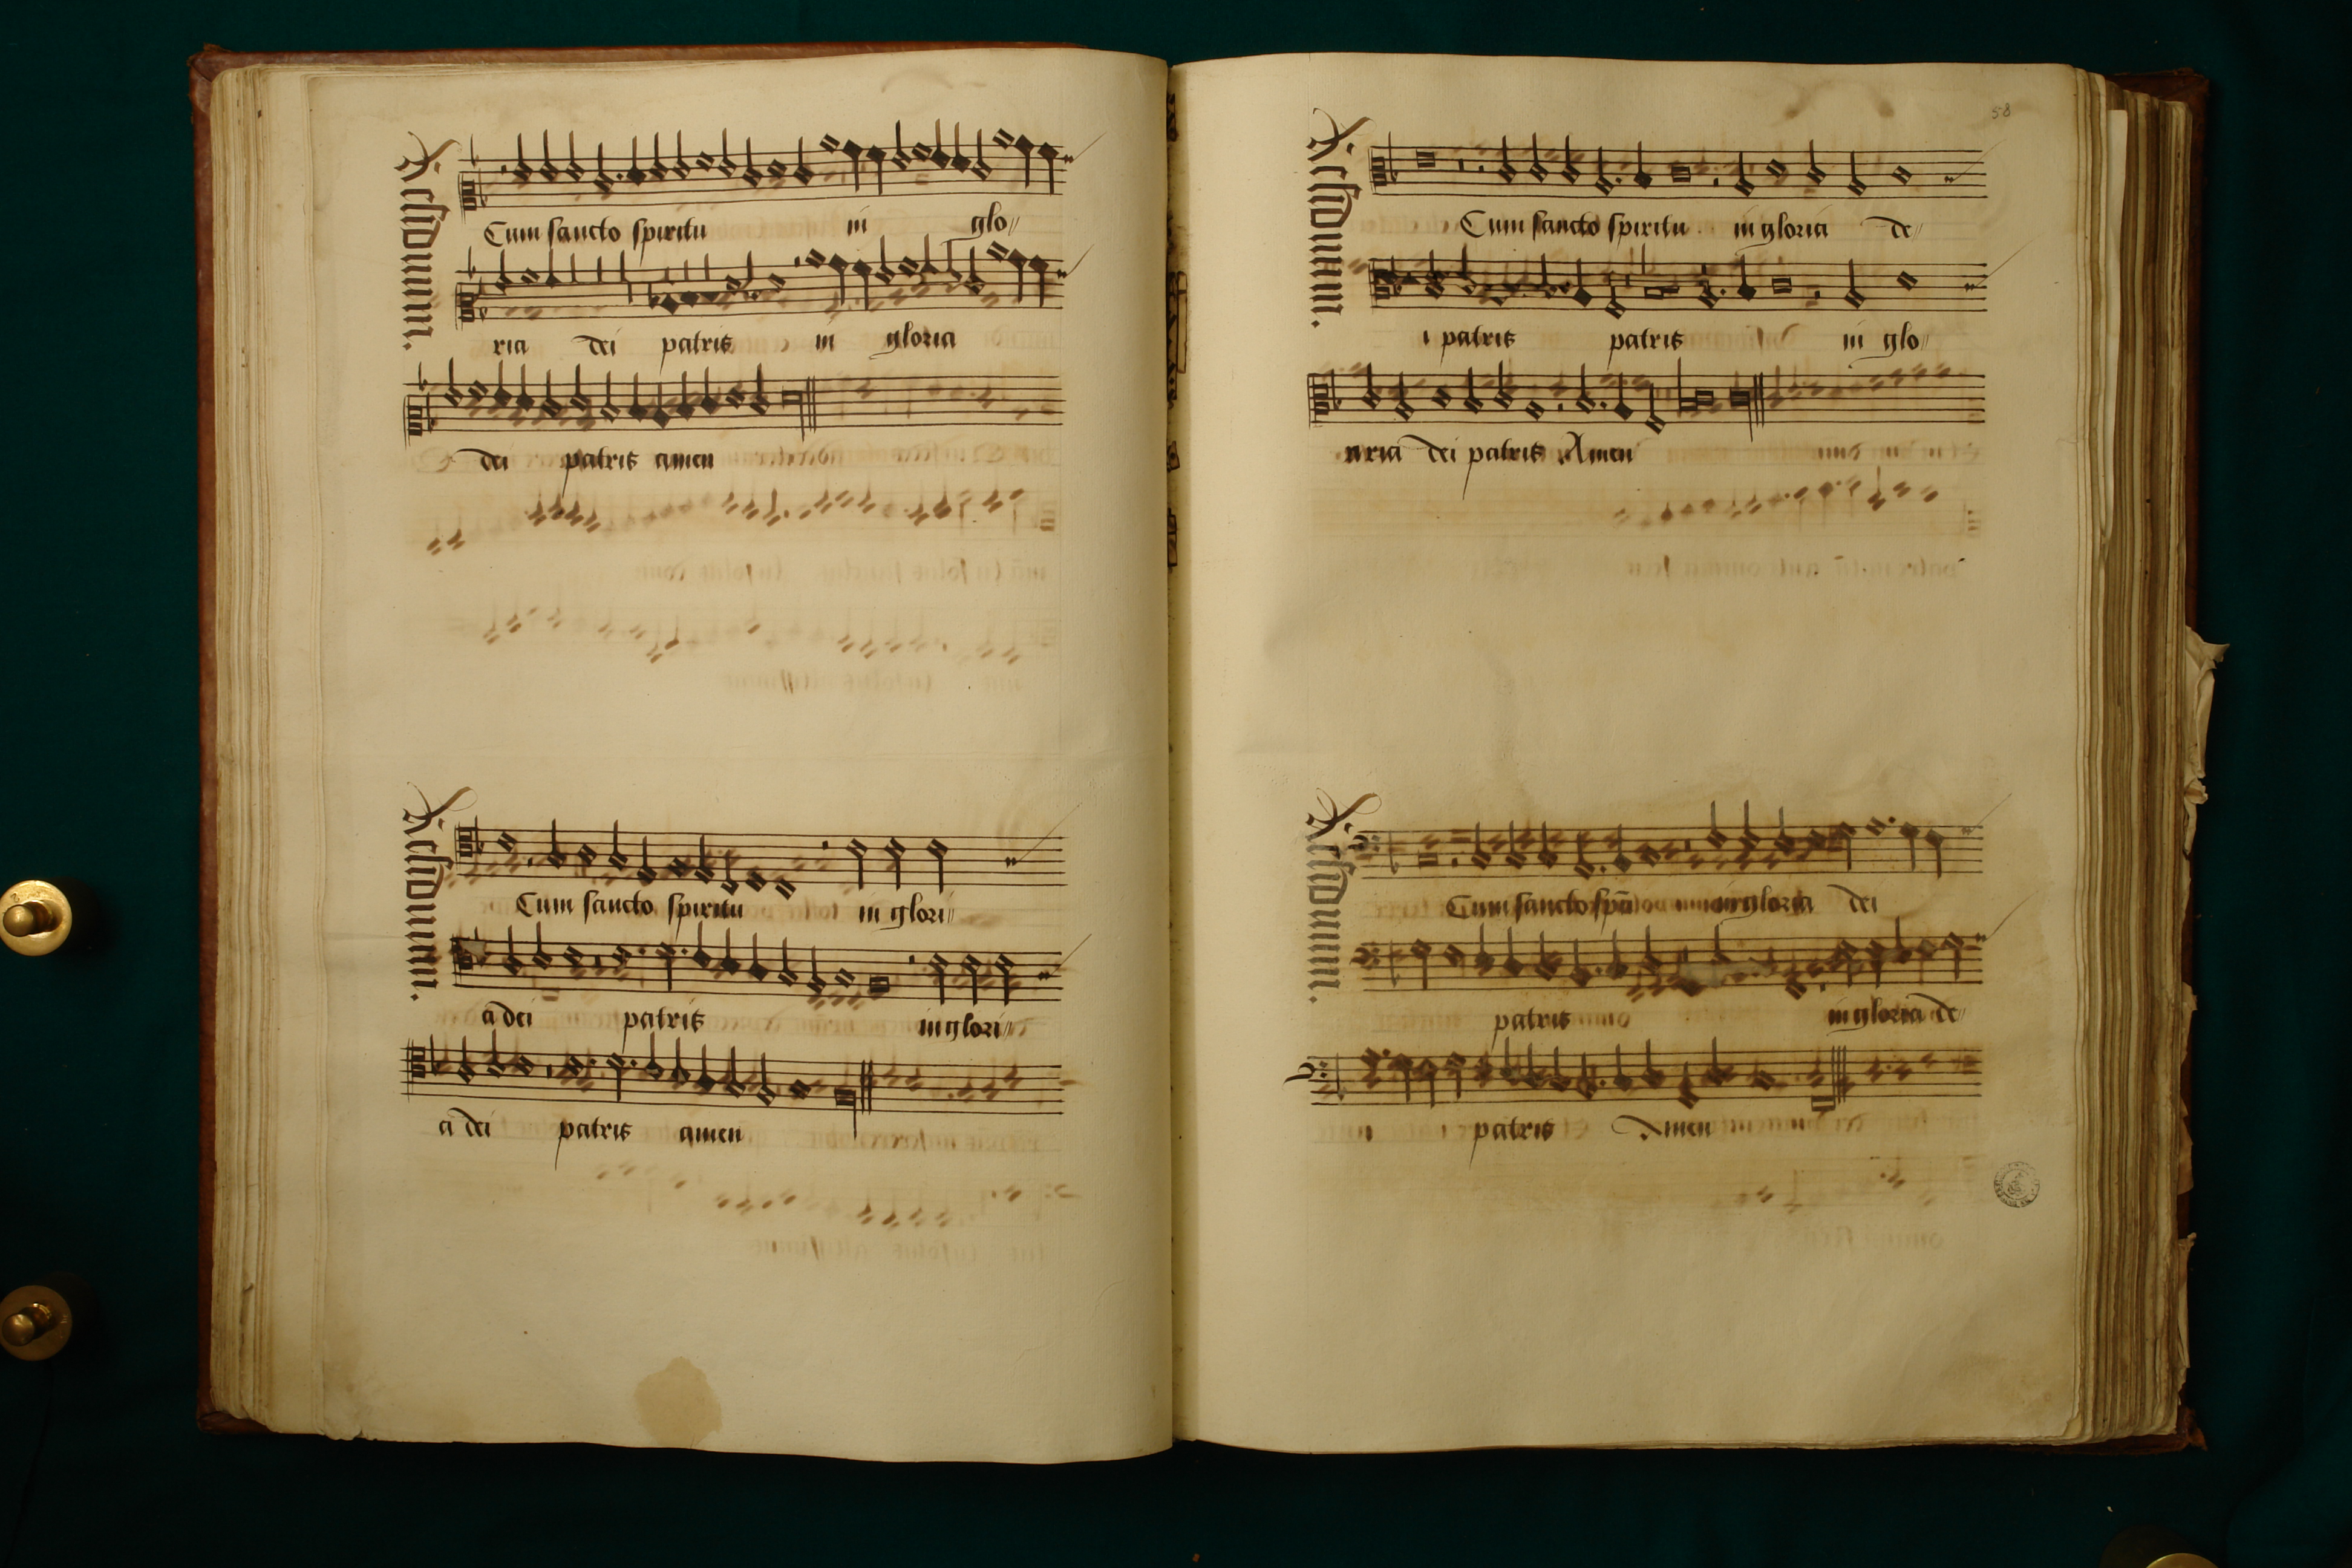 Residuum.
Cum sancto spiritu in glo〃
ria dei patris in gloria
dei patris amen
Residuum.
Cum sancto spiritu in glori〃
a dei patris in glori〃
a dei patris amen
58
Residuum.
Cum sancto spiritu in gloria de〃
i patris patris in glo〃
ria dei patris Amen
Residuum.
Cum sancto spũ in gloria dei
patris in gloria de〃
i patris Amen